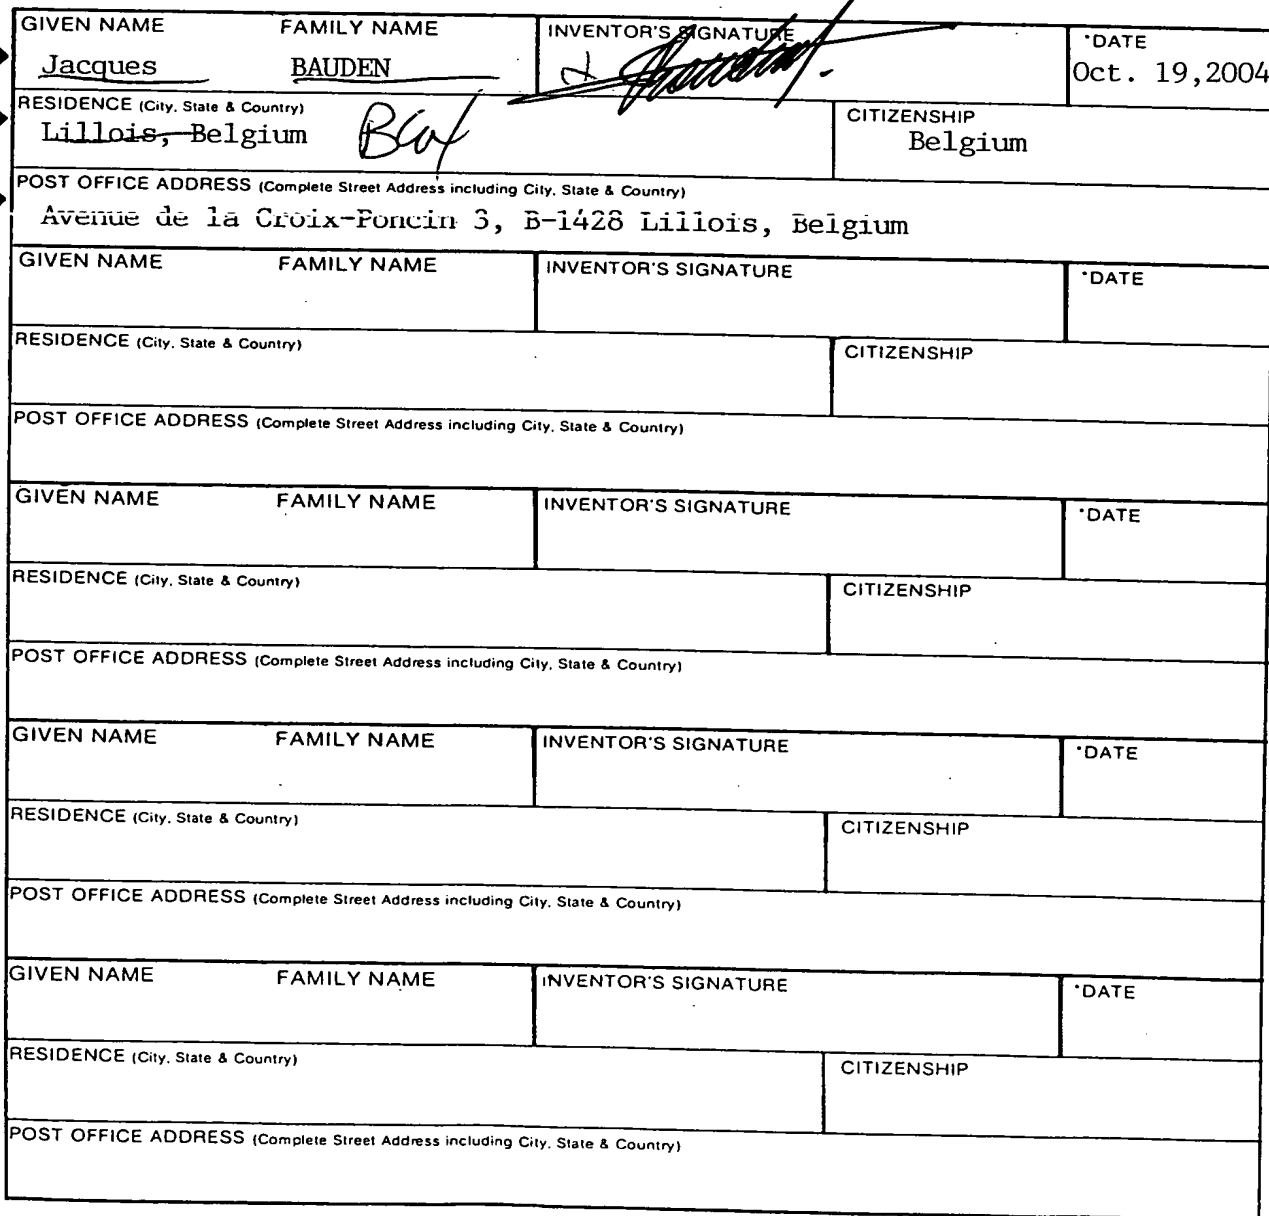 GIVEN NAME FAMILY NAME INVENTOR'S SIGNATURE *DATE
Jacques BAUDEN Oct. 19,2004
RESIDENCE (City, State & Country) CITIZENSHIP
Lillois, Belgium Belgium
POST OFFICE ADDRESS (Complete Street Address including City, State & Country)
Avenue de la Croix-Poncin 3, B-1428 Lillois, Belgium
GIVEN NAME FAMILY NAME INVENTOR'S SIGNATURE *DATE
RESIDENCE (City, State & Country) CITIZENSHIP
POST OFFICE ADDRESS (Complete Street Address including City, State & Country)
GIVEN NAME FAMILY NAME INVENTOR'S SIGNATURE *DATE
RESIDENCE (City, State & Country) CITIZENSHIP
POST OFFICE ADDRESS (Complete Street Address including City, State & Country)
GIVEN NAME FAMILY NAME INVENTOR'S SIGNATURE *DATE
RESIDENCE (City, State & Country) CITIZENSHIP
POST OFFICE ADDRESS (Complete Street Address including City, State & Country)
GIVEN NAME FAMILY NAME INVENTOR'S SIGNATURE *DATE
RESIDENCE (City, State & Country) CITIZENSHIP
POST OFFICE ADDRESS (Complete Street Address including City, State & Country)